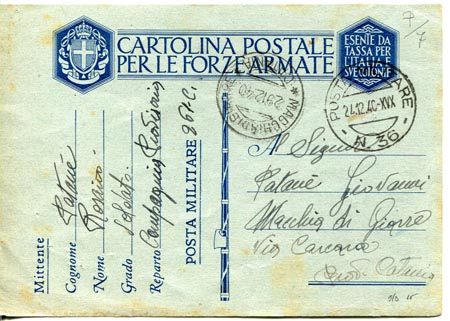 7/7
CARTOLINA POSTALE
PER LE FORZE ARMATE
ESENTE DA
TASSA PER L'
ITALIA E
SVE COLONIE
MACCHIA DI GIARRE
29.12.40
POSTA MILITARE
24.12.40.XIX
N. 36
Mittente
Cognome Patanè
Nome
Grado Soldato
Reparto Compagnia
POSTA MILITARE 961.C.
Al Signor
Patanè Giovanni
Macchia di Giarre
Via Carcara
Prov. Catania